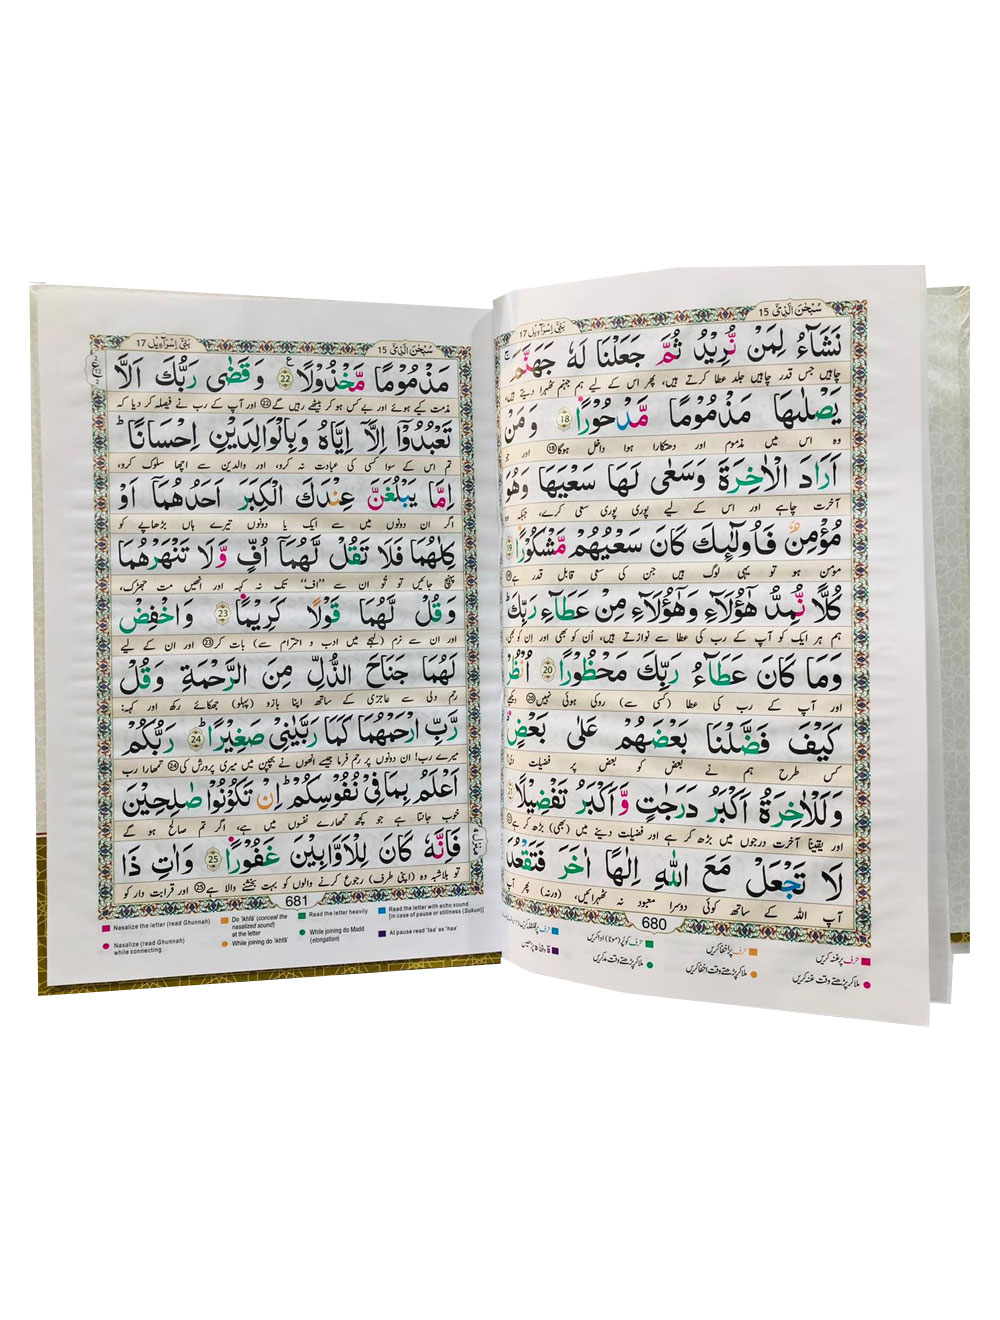 سُبْحٰنَ الَّذِیْٓ 15
بَنِیْٓ اِسْرَآءِیْل 17
نَشَآءُ لِمَنْ نُّرِیْدُ ثُمَّ جَعَلْنَا لَهٗ جَهَنَّمَ
چاہیں جس قدر چاہیں جلد عطا کرتے ہیں، پھر اس کے لیے ہم جہنم ٹھہرا دیتے ہیں،
یَصْلٰىهَا مَذْمُوْمًا مَّدْحُوْرًا 18 وَمَنْ
وہ اس میں مذموم اور دھتکارا ہوا داخل ہوگا 18 اور جو
اَرَادَ الْاٰخِرَةَ وَسَعٰی لَهَا سَعْیَهَا وَهُوَ
آخرت چاہے اور اس کے لیے پوری پوری سعی کرے، جبکہ وہ
مُؤْمِنٌ فَاُولٰٓىِٕكَ كَانَ سَعْیُهُمْ مَّشْكُوْرًا 19
مؤمن ہو تو یہی لوگ ہیں جن کی سعی قابل قدر ہے
كُلًّا نُّمِدُّ هٰۤؤُلَآءِ وَهٰۤؤُلَآءِ مِنْ عَطَآءِ رَبِّكَ
ہم ہر ایک کو آپ کے رب کی عطا سے نوازتے ہیں، اُن کو بھی اور اِن کو بھی،
وَمَا كَانَ عَطَآءُ رَبِّكَ مَحْظُوْرًا 20 اُنْظُرْ
اور آپ کے رب کی عطا (کسی سے) روکی ہوئی نہیں 20 دیکھیے
كَیْفَ فَضَّلْنَا بَعْضَهُمْ عَلٰی بَعْضٍ
کس طرح ہم نے بعض کو بعض پر فضیلت دی!
وَلَلْاٰخِرَةُ اَكْبَرُ دَرَجٰتٍ وَّ اَكْبَرُ تَفْضِیْلًا
اور یقیناً آخرت درجوں میں بڑھ کر ہے اور فضیلت دینے میں (بھی) بڑھ کر ہے
لَا تَجْعَلْ مَعَ اللّٰهِ اِلٰهًا اٰخَرَ فَتَقْعُدَ
آپ اللہ کے ساتھ کوئی دوسرا معبود نہ ٹھہرائیں، (ورنہ) پھر آپ
680
حرف پر غنہ کریں
حرف پر اخفا کریں
حرف کو پُر (موٹا) ادا کریں
ملا کر پڑھتے وقت غنہ کریں
ملا کر پڑھتے وقت اخفا کریں
ملا کر پڑھتے وقت مد کریں
سُبْحٰنَ الَّذِیْٓ 15
بَنِیْٓ اِسْرَآءِیْل 17
مَذْمُوْمًا مَّخْذُوْلًا 22 وَقَضٰی رَبُّكَ اَلَّا
مذمت کیے ہوئے اور بے کس ہو کر بیٹھے رہیں گے 22 اور آپ کے رب نے فیصلہ کر دیا کہ
تَعْبُدُوْۤا اِلَّاۤ اِیَّاهُ وَبِالْوَالِدَیْنِ اِحْسَانًا ؕ
تم اس کے سوا کسی کی عبادت نہ کرو، اور والدین سے اچھا سلوک کرو،
اِمَّا یَبْلُغَنَّ عِنْدَكَ الْكِبَرَ اَحَدُهُمَاۤ اَوْ
اگر ان دونوں میں سے ایک یا دونوں تیرے ہاں بڑھاپے کو
كِلٰهُمَا فَلَا تَقُلْ لَّهُمَاۤ اُفٍّ وَّلَا تَنْهَرْهُمَا
پہنچ جائیں تو تُو ان سے ’’اف‘‘ تک نہ کہہ اور انھیں مت جھڑک،
وَقُلْ لَّهُمَا قَوْلًا كَرِیْمًا 23 وَاخْفِضْ
اور ان سے نرم (لہجے میں ادب و احترام سے) بات کر 23 اور ان کے لیے
لَهُمَا جَنَاحَ الذُّلِّ مِنَ الرَّحْمَةِ وَقُلْ
رحم دلی سے عاجزی کے ساتھ اپنا بازو (پہلو) جھکائے رکھ اور کہہ:
رَّبِّ ارْحَمْهُمَا كَمَا رَبَّیٰنِیْ صَغِیْرًا ؕ 24 رَبُّكُمْ
میرے رب! ان دونوں پر رحم فرما جیسے انھوں نے بچپن میں میری پرورش کی 24 تمھارا رب
اَعْلَمُ بِمَا فِیْ نُفُوْسِكُمْ ؕ اِنْ تَكُوْنُوْا صٰلِحِیْنَ
خوب جانتا ہے جو کچھ تمھارے نفسوں میں ہے، اگر تم صالح ہو گے
فَاِنَّهٗ كَانَ لِلْاَوَّابِیْنَ غَفُوْرًا 25 وَاٰتِ ذَا
تو بلاشبہ وہ (اپنی طرف) رجوع کرنے والوں کو بہت بخشنے والا ہے 25 اور قرابت دار کو
681
Nasalize the letter (read Ghunnah)
Do 'ikhfā' (conceal the nasalized sound) at the letter
Read the letter heavily
Read the letter with echo sound [in case of pause or stillness (Sukun)]
Nasalize (read Ghunnah) while connecting.
While joining do 'ikhfā'
While joining do Madd (elongation)
At pause read 'taa' as 'haa'